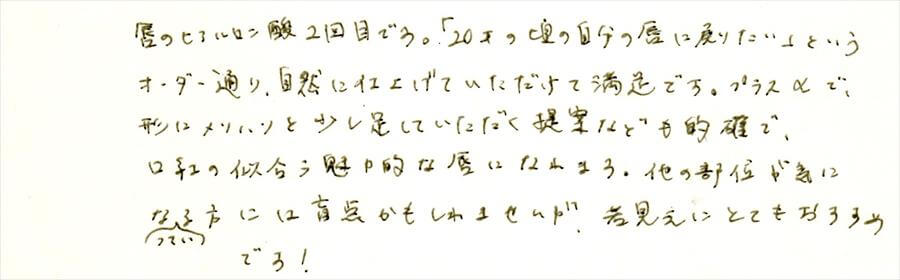 唇のヒアルロン酸2回目です。「20才の頃の自分の唇に戻りたい」という
オーダー通り、自然に仕上げていただけて満足です。プラスαで、
形にメリハリを少し足していただく提案なども的確で、
口紅の似合う魅力的な唇になれます。他の部位が気に
なっている方には盲点かもしれませんが、若見えにとてもおすすめ
です!